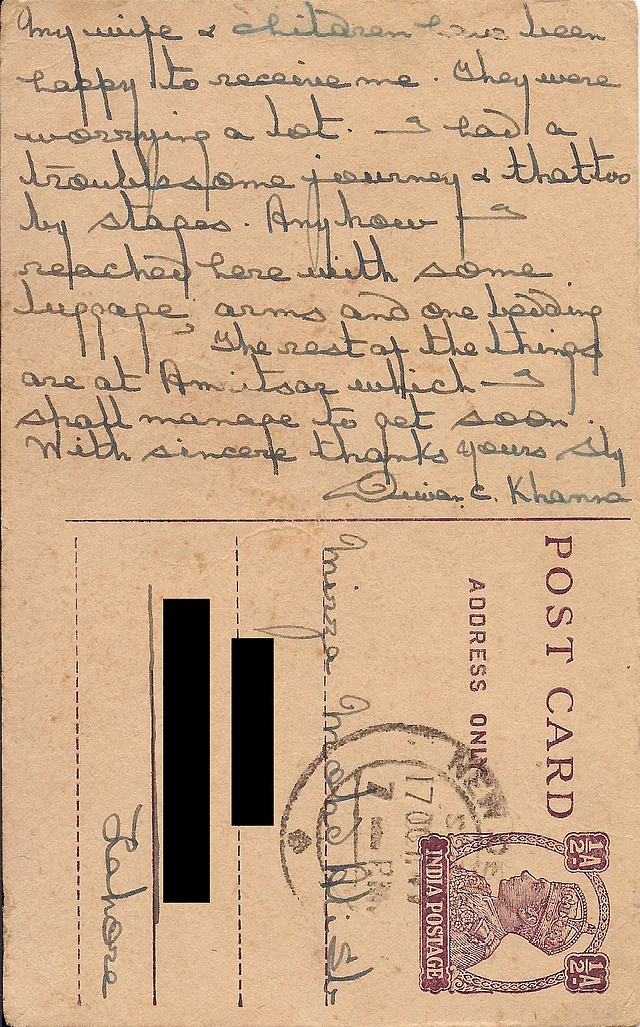 My wife & children have been
happy to receive me. They were
worrying a lot. I had a
troublesome journey & that too
by stages. Anyhow I
reached here with some
luggage, arms and one bedding
The rest of the things
are at Amritsar which I
shall manage to get soon.
With sincere thanks yours sly
Dewan C. Khanna
POST CARD
ADDRESS ONLY
½A
½A
INDIA POSTAGE
NEW DE
17 OC
7 - PM
Mirza Ali
Lahore